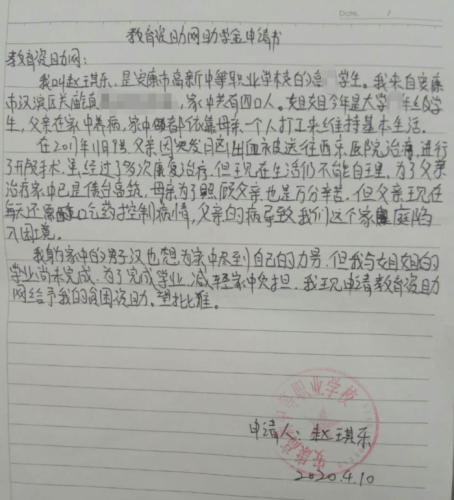 Date. /
教育资助网助学金申请书
教育资助网:
我叫赵琪乐,是安康市高新中等职业学校的 学生。我来自安康
市汉滨区关庙镇 ,家中共有四口人。姐姐今年是大学 年级学
生,父亲在家中养病,家中都依靠母亲一个人打工来维持基本生活。
在2011年1月 ,父亲因突发 区出血被送往西京医院治疗,进行
了开颅手术。虽经过了多次康复治疗,但至今生活仍不能自理。为了父亲
治病家中已是债台高筑,母亲为了照顾父亲也是万分辛苦。但父亲现在
每天还需 吃药控制病情,父亲的病导致我们这个家庭陷
入困境。
我身为家中的男子汉也想为家中尽到自己的力量,但我与姐姐的
学业尚未完成,为了完成学业,减轻家中负担,我现申请教育资助
网给予我的贫困资助。望批准。
职业学校
申请人:赵琪乐
2020.4.10